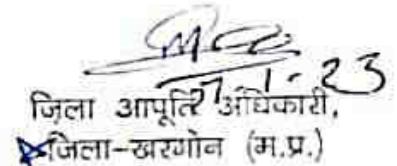 जिला आपूर्ति अधिकारी,
जिला-खरगोन (म.प्र.)